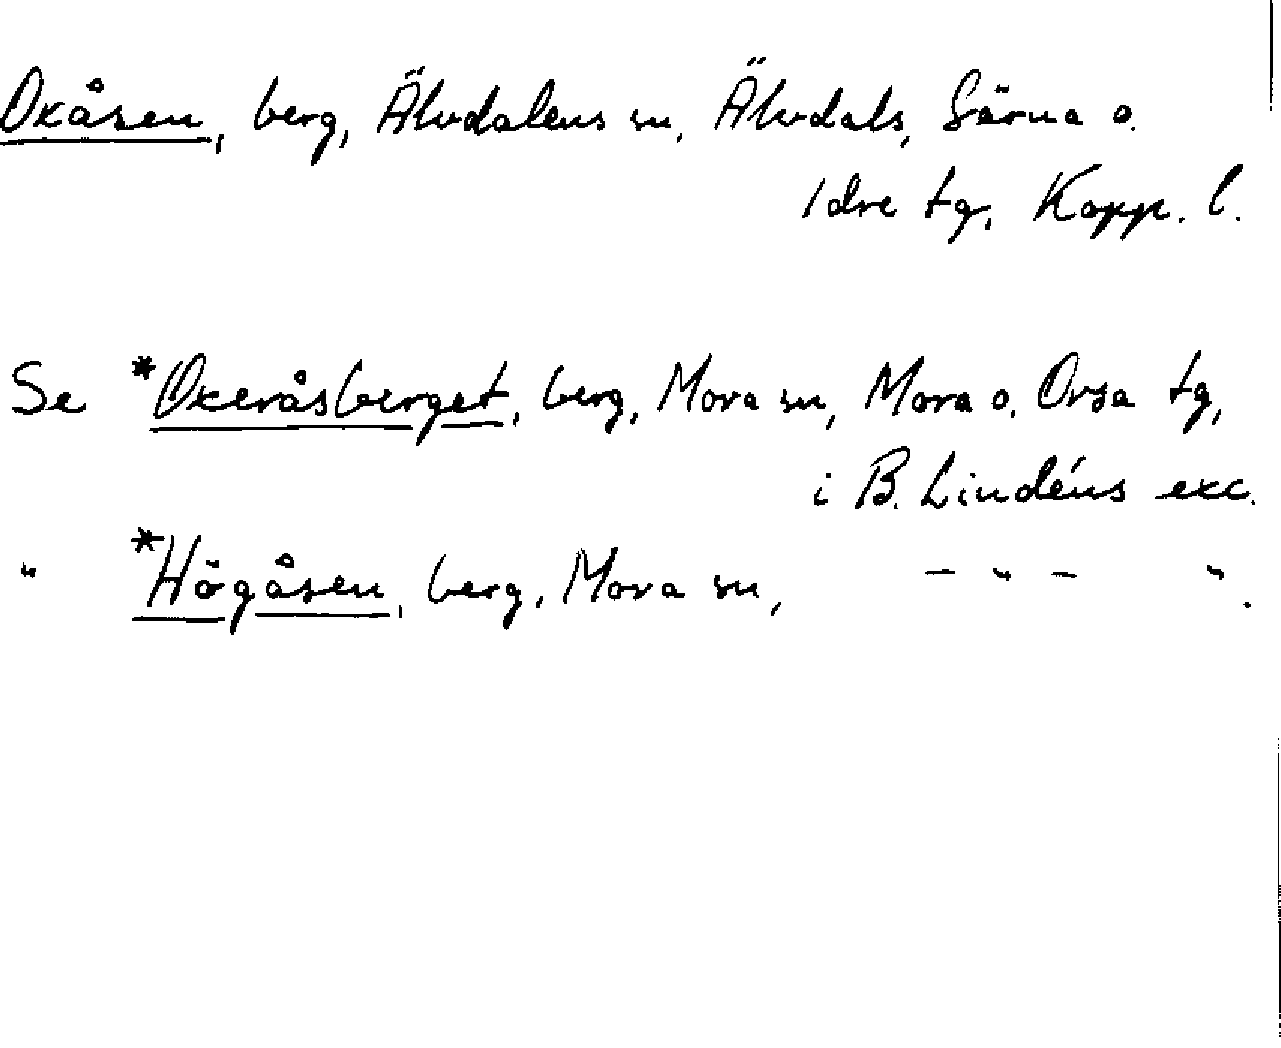 Oxåsen, berg, Älvdalens sn, Älvdals, Särna o.
Idre tg, Kopp. l.
Se *Oxeråsberget, berg, Mora sn, Mora o. Orsa tg,
i B. Lindéns exc.
" *Högåsen, berg, Mora sn, – " – " .